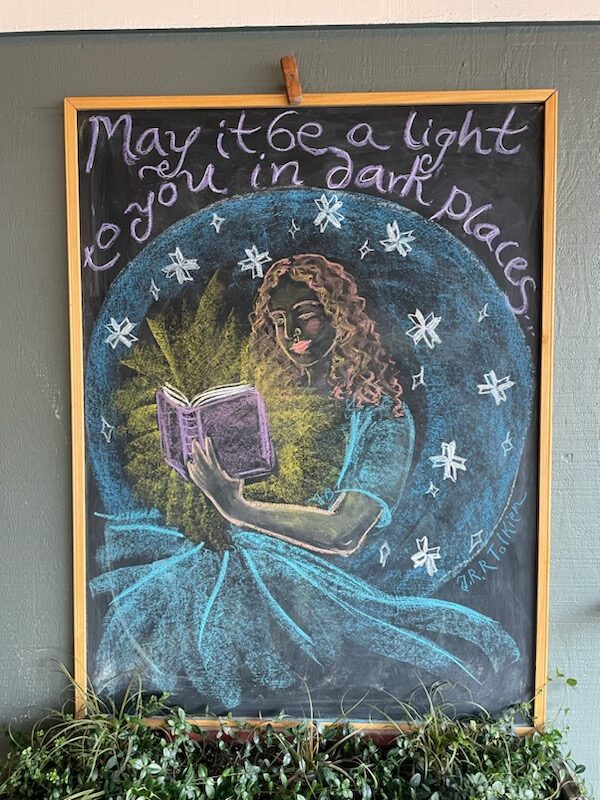 May it be a light
to you in dark places...
J.R.R Tolkien